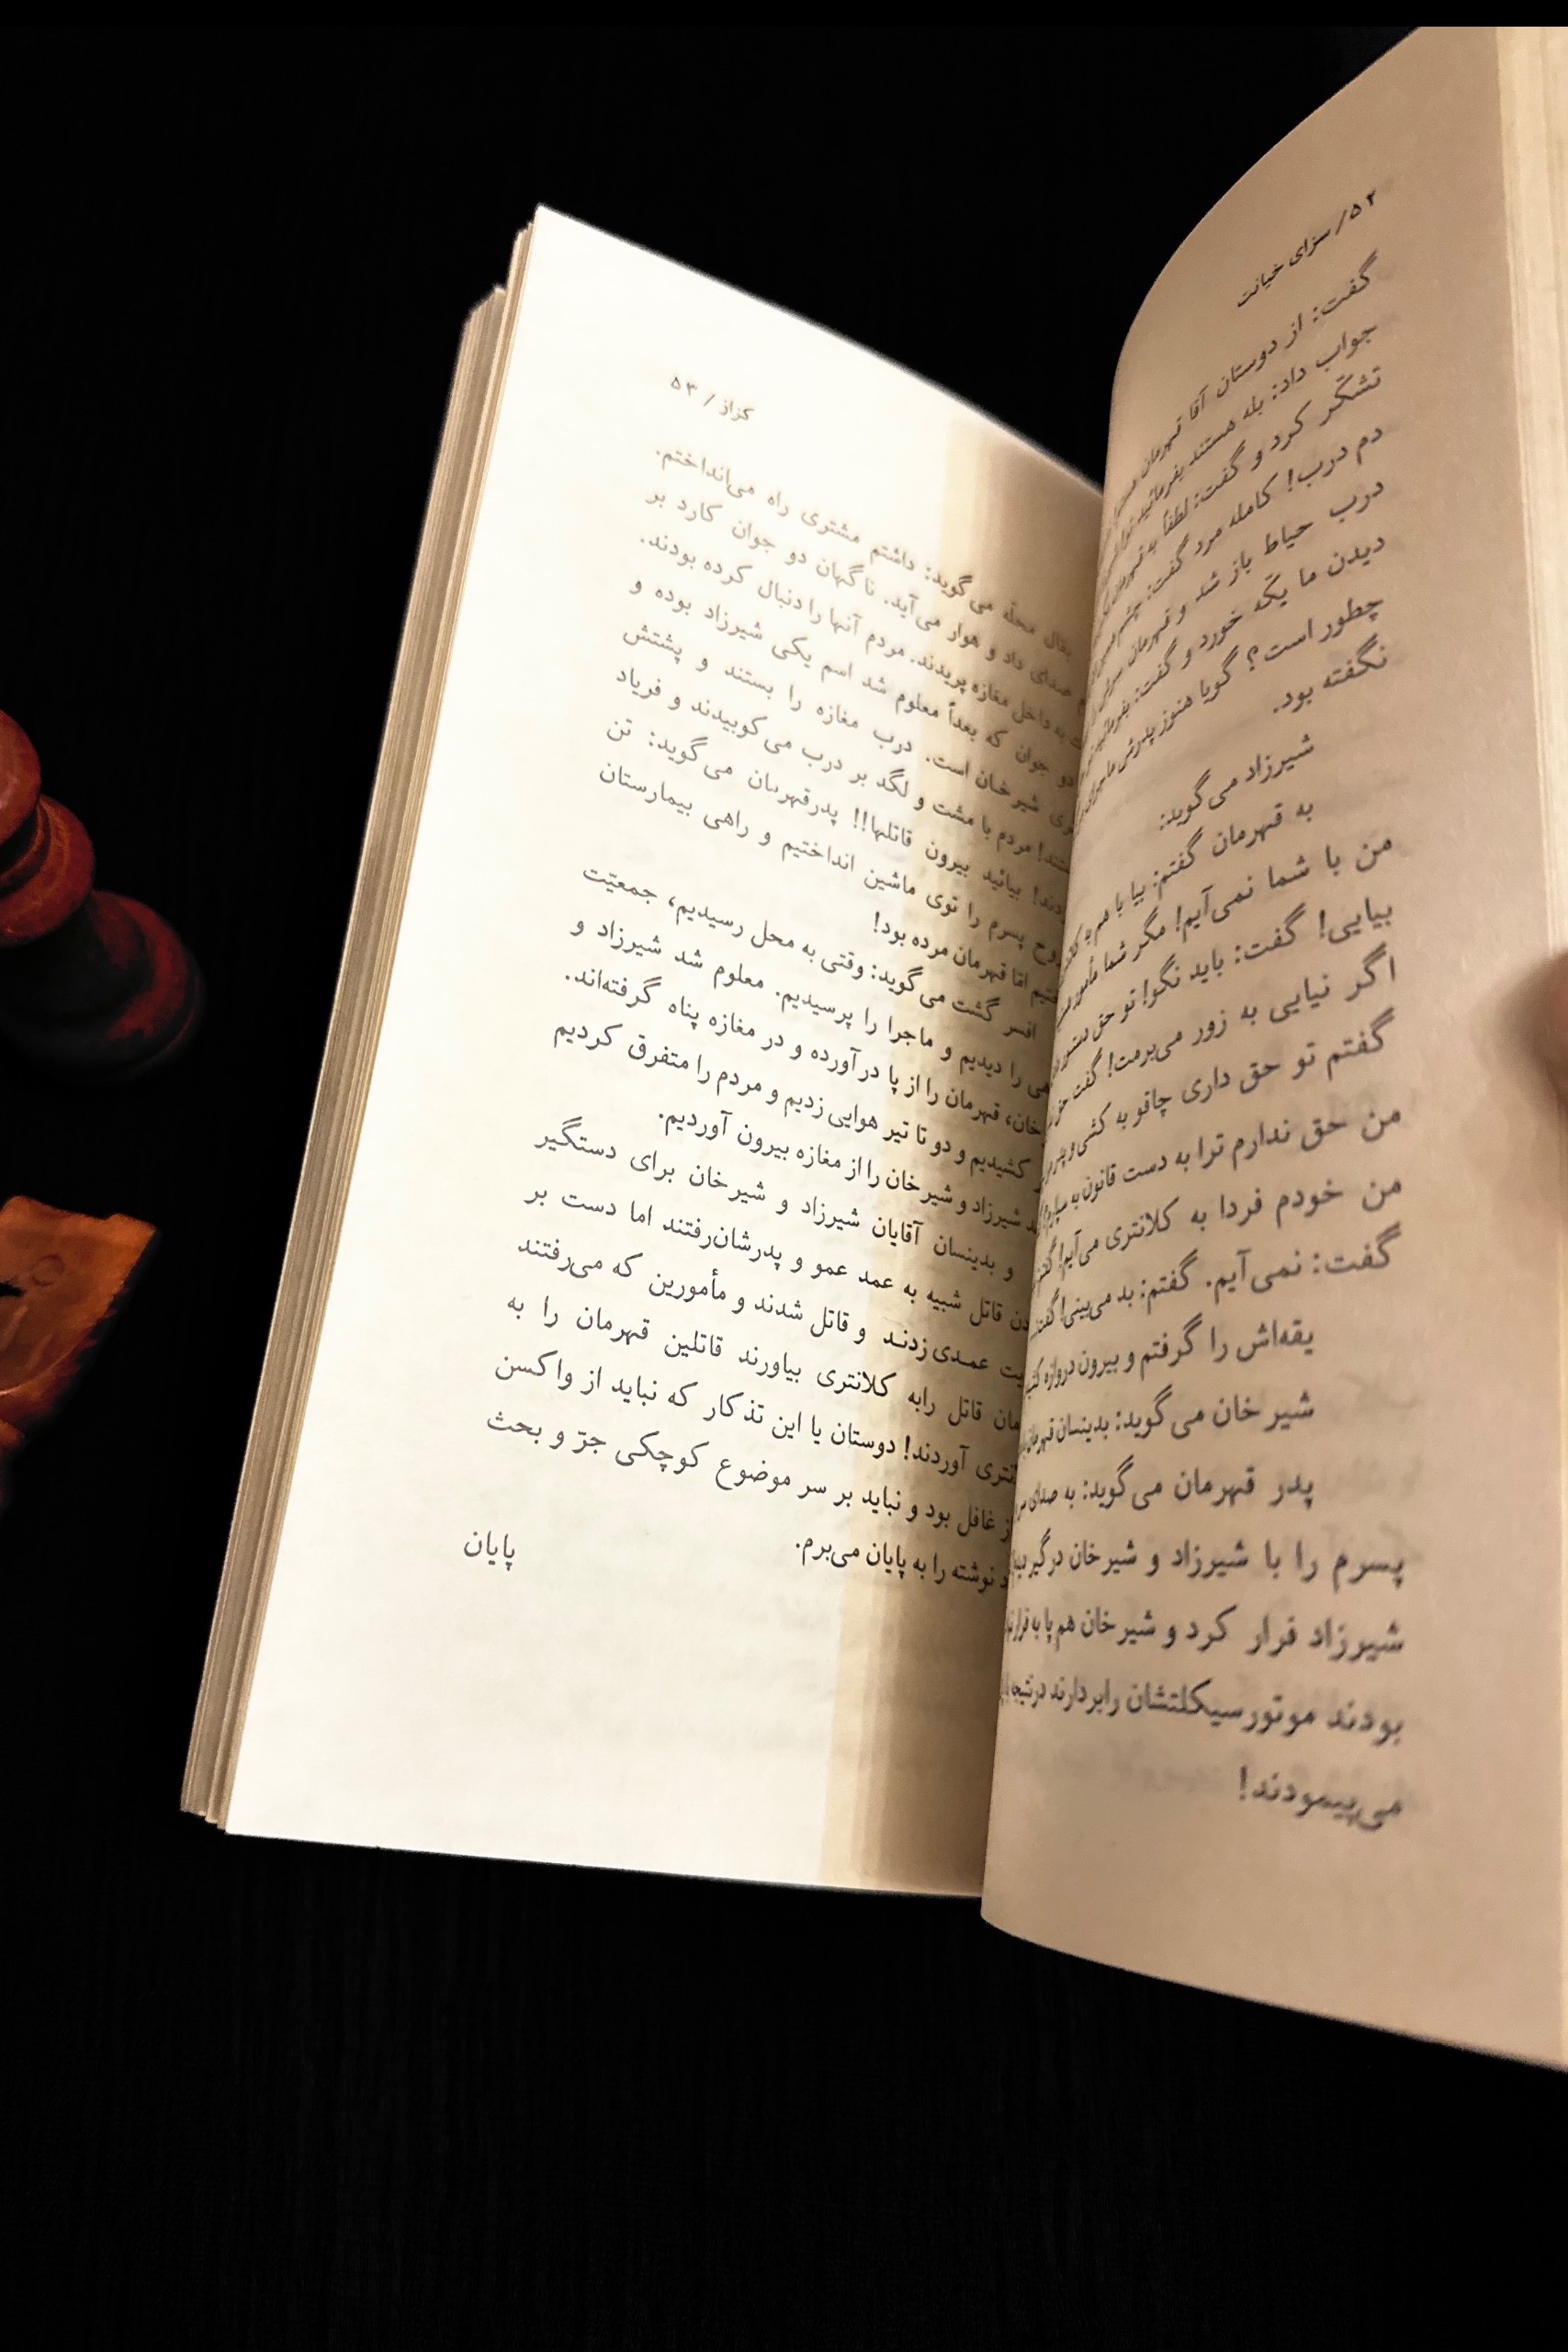 ۵۲/ سزای خیانت
گفت: از دوستان آقا قهرمان
جواب داد: بله هستند بفرمائید
تشکّر کرد و گفت: لطفاً به قهرمان
دم درب! کامله مرد گفت: چشم
درب حیاط باز شد و قهرمان
دیدن ما یکّه خورد و گفت: بفرمائید
چطور است؟ گویا هنوز پدرش ماجرای
نگفته بود.
شیرزاد می‌گوید:
به قهرمان گفتم: بیا با هم به
من با شما نمی‌آیم! مگر شما مأمور
بیایی! گفت: باید نگو! تو حق
اگر نیایی به زور می‌برمت! گفت حق
گفتم تو حق داری چاقو به کشی و
من حق ندارم ترا به دست قانون به سپارم!
من خودم فردا به کلانتری می‌آیم!
گفت: نمی‌آیم. گفتم: بد می‌بینی!
یقه‌اش را گرفتم و بیرون دروازه
شیر خان می‌گوید: بدینسان
پدر قهرمان می‌گوید: به صدای
پسرم را با شیرزاد و شیرخان درگیر
شیرزاد فرار کرد و شیرخان هم پا به فرار
بودند موتورسیکلتشان رابردارند درنتیجه
می‌پیمودند!
کزاز / ۵۳
بقال محلّه می‌گوید: داشتم مشتری راه می‌انداختم.
صدای داد و هوار می‌آید. ناگهان دو جوان کارد بر
به داخل مغازه پریدند. مردم آنها را دنبال کرده بودند.
دو جوان که بعداً معلوم شد اسم یکی شیرزاد بوده و
شیرخان است. درب مغازه را بستند و پشتش
مردم با مشت و لگد بر درب می‌کوبیدند و فریاد
بیائید بیرون قاتلها!! پدرقهرمان می‌گوید: تن
پسرم را توی ماشین انداختیم و راهی بیمارستان
امّا قهرمان مرده بود!
افسر گشت می‌گوید: وقتی به محل رسیدیم، جمعیّت
را دیدیم و ماجرا را پرسیدیم. معلوم شد شیرزاد و
خان، قهرمان را از پا درآورده و در مغازه پناه گرفته‌اند.
کشیدیم و دو تا تیر هوایی زدیم و مردم را متفرق کردیم
شیرزاد و شیرخان را از مغازه بیرون آوردیم.
و بدینسان آقایان شیرزاد و شیرخان برای دستگیر
قاتل شبیه به عمد عمو و پدرشان‌رفتند اما دست بر
عمدی زدند و قاتل شدند و مأمورین که می‌رفتند
قاتل رابه کلانتری بیاورند قاتلین قهرمان را به
آوردند! دوستان یا این تذکار که نباید از واکسن
غافل بود و نباید بر سر موضوع کوچکی جرّ و بحث
نوشته را به پایان می‌برم.
پایان